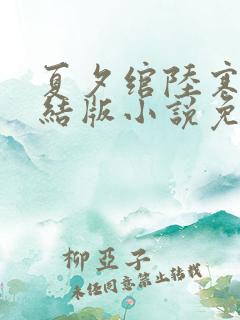 夏夕綰陸寒
結版小說免
柳亞子
未經同意禁止轉載